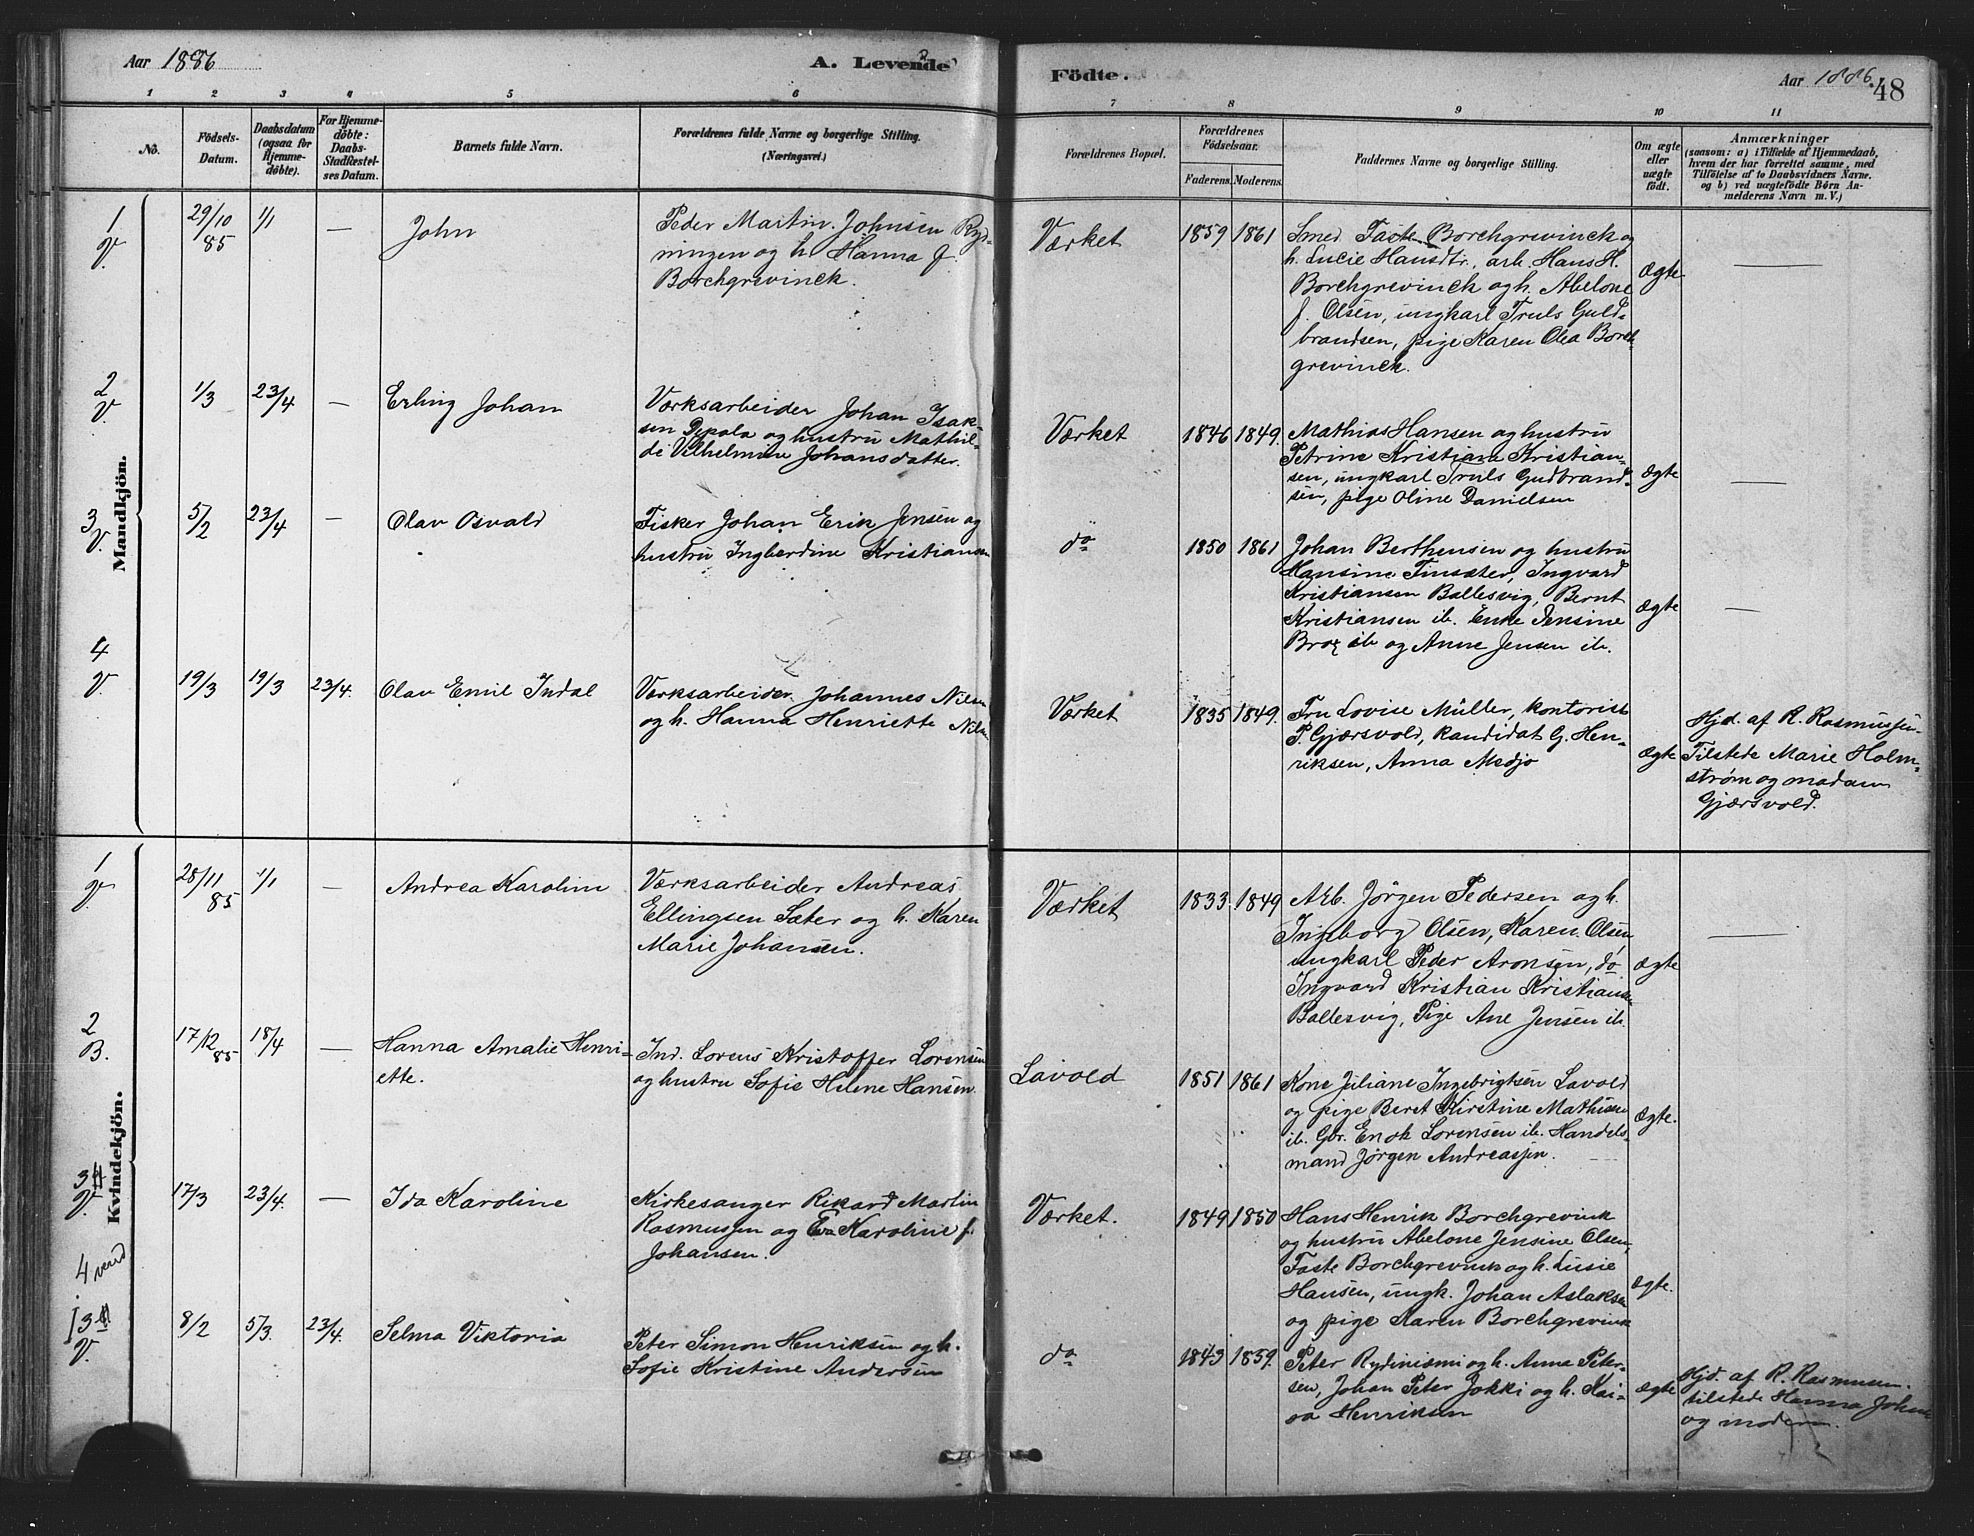 Aar 1886
A. Levende
Födte.
Aar 1886.
48
1 2 3 4 5 6 7 8 9 10 11
No.
Födsels-
Datum.
Daabsdatum
(ogsaa for
Hjemme-
döbte).
For Hjemme-
döbte:
Daabs-
Stadfæstel-
ses Datum.
Barnets fulde Navn.
Forældrenes fulde Navne og borgerlige Stilling.
(Næringsvei.)
Forældrenes Bopæl.
Forældrenes
Födselsaar.
Faderens. Moderens.
Faddernes Navne og borgerlige Stilling.
Om ægte
eller
uægte
födt.
Anmærkninger
(saasom: a) i Tilfælde af Hjemmedaab,
hvem der har forrettet samme, med
Tilföielse af to Daabsvidners Navne.
og b) ved uægtefödte Börn An-
melderens Navn m. V.)
Mandkjön.
1
V.
29/10
85
1/1
—
John
Peder Martin Johnsen Ryd-
ningen og h. Hanna f.
Borchgrevinck.
Værket
1859 1861
Smed Faste Borchgrevinck og
h. Lucie Hansdtr., arb. Hans H.
Borchgrevinck og h. Abelone
f. Olsen, ungkarl Truls Guld-
brandsen, pige Karen Olea Borch-
grevinck.
Ægte
—
2
V.
1/3
23/4
—
Erling Johan
Værksarbeider Johan Isak-
sen og hustru Mathil-
de Vilhelmine Johansdatter.
Værket
1846 1849.
Mathias Hansen og hustru
Petrine Kristiane Kristian-
sen, ungkarl Truls Gudbrand-
sen, pige Oline Danielsen
Ægte
—
3
V.
5/2
23/4
—
Olav Osvald
Fisker Johan Erik Jensen og
hustru Ingberdine Kristiansen
do
1850 1861
Johan Berthensen og hustru
Hansine Finsæter, Ingvard
Kristiansen Ballesvig, Bernt
Kristiansen ib. Enke Jensine
Brox ib og Anne Jensen ib.
Ægte
—
4
V.
19/3
19/3
23/4.
Olav Emil Indal
Værksarbeider Johannes Nilsen
og h. Hanna Henriette Nilsen
Værket
1835 1849.
Fru Lovise Müller, kontorist
P. Gjærsvold, kandidat G. Hen-
riksen, Anna Medjo
Ægte
Hjd. af R. Rasmussen.
Tilstede Marie Holm-
strøm og madam
Gjærsvold.
Kvindekjön.
1
V.
28/11
85
1/1
—
Andrea Karoline
Værksarbeider Andreas
Ellingsen Sæter og h. Karen
Marie Johansen.
Værket
1833 1849
Arb. Jörgen Pedersen og h.
Ingeborg Olsen, Karen Olsen,
ungkarl Peder Aronsen, do
Ingvard Kristian Kristiansen
Ballesvig, Pige Ane Jensen ib.
Ægte
—
2
B.
17/12
85
18/4
—
Hanna Amalie Henri-
ette.
Ind. Lorens Kristoffer Lorensen
og hustru Sofie Helene Hansen.
Lavold
1851 1861
Kone Juliane Ingebrigtsen Lavold
og pige Beret Kirstine Mathisen
ib. Gbr. Enok Lorensen ib. Handels-
mand Jørgen Andreassen.
Ægte.
3
V.
17/3
23/4.
—
Ida Karoline
Kirkesanger Rikard Martin
Rasmussen og Eva Karoline f.
Johansen.
Værket.
1849 1850
Hans Henrik Borchgrevink
og hustru Abelone Jensine Olsen,
Faste Borchgrevink og h. Lusie
Hansen, ungk. Johan Aslaksen
og pige Karen Borchgrevink
Ægte.
4
3
V.
8/2
5/3.
23/4.
Selma Viktoria
Peter Simon Henriksen og h.
Sofie Kristine Andersen
do
1843 1859.
Peter og h. Anna Peter-
sen, Johan Peter Jokki og h. Kai-
sa Henriksen
Ægte
Hjd. af R. Rasmussen.
tilstede Hanna Johnsen
og moderen.